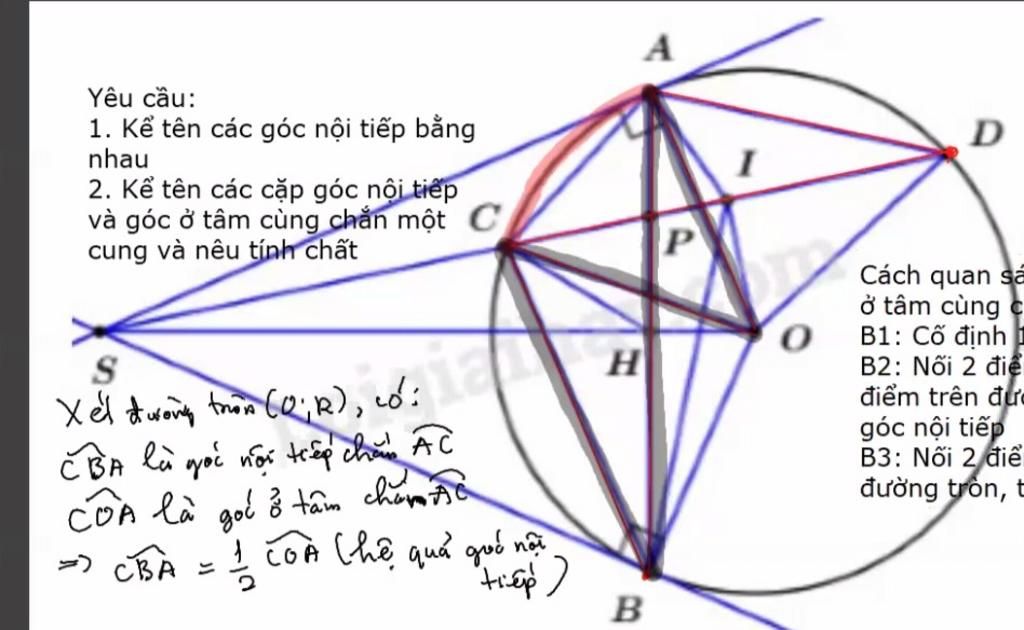 Yêu cầu:
1. Kể tên các góc nội tiếp bằng
nhau
2. Kể tên các cặp góc nội tiếp
và góc ở tâm cùng chắn một
cung và nêu tính chất
A
D
I
C
P
S
H
O
B
Cách quan sá
ở tâm cùng c
B1: Cố định 1
B2: Nối 2 điể
điểm trên đư
góc nội tiếp
B3: Nối 2 điể
đường tròn, t
Xét đường tròn (O;R), có:
CBA là góc nội tiếp chắn AC
COA là góc ở tâm chắn AC
=> CBA = 1/2 COA (hệ quả góc nội
tiếp)